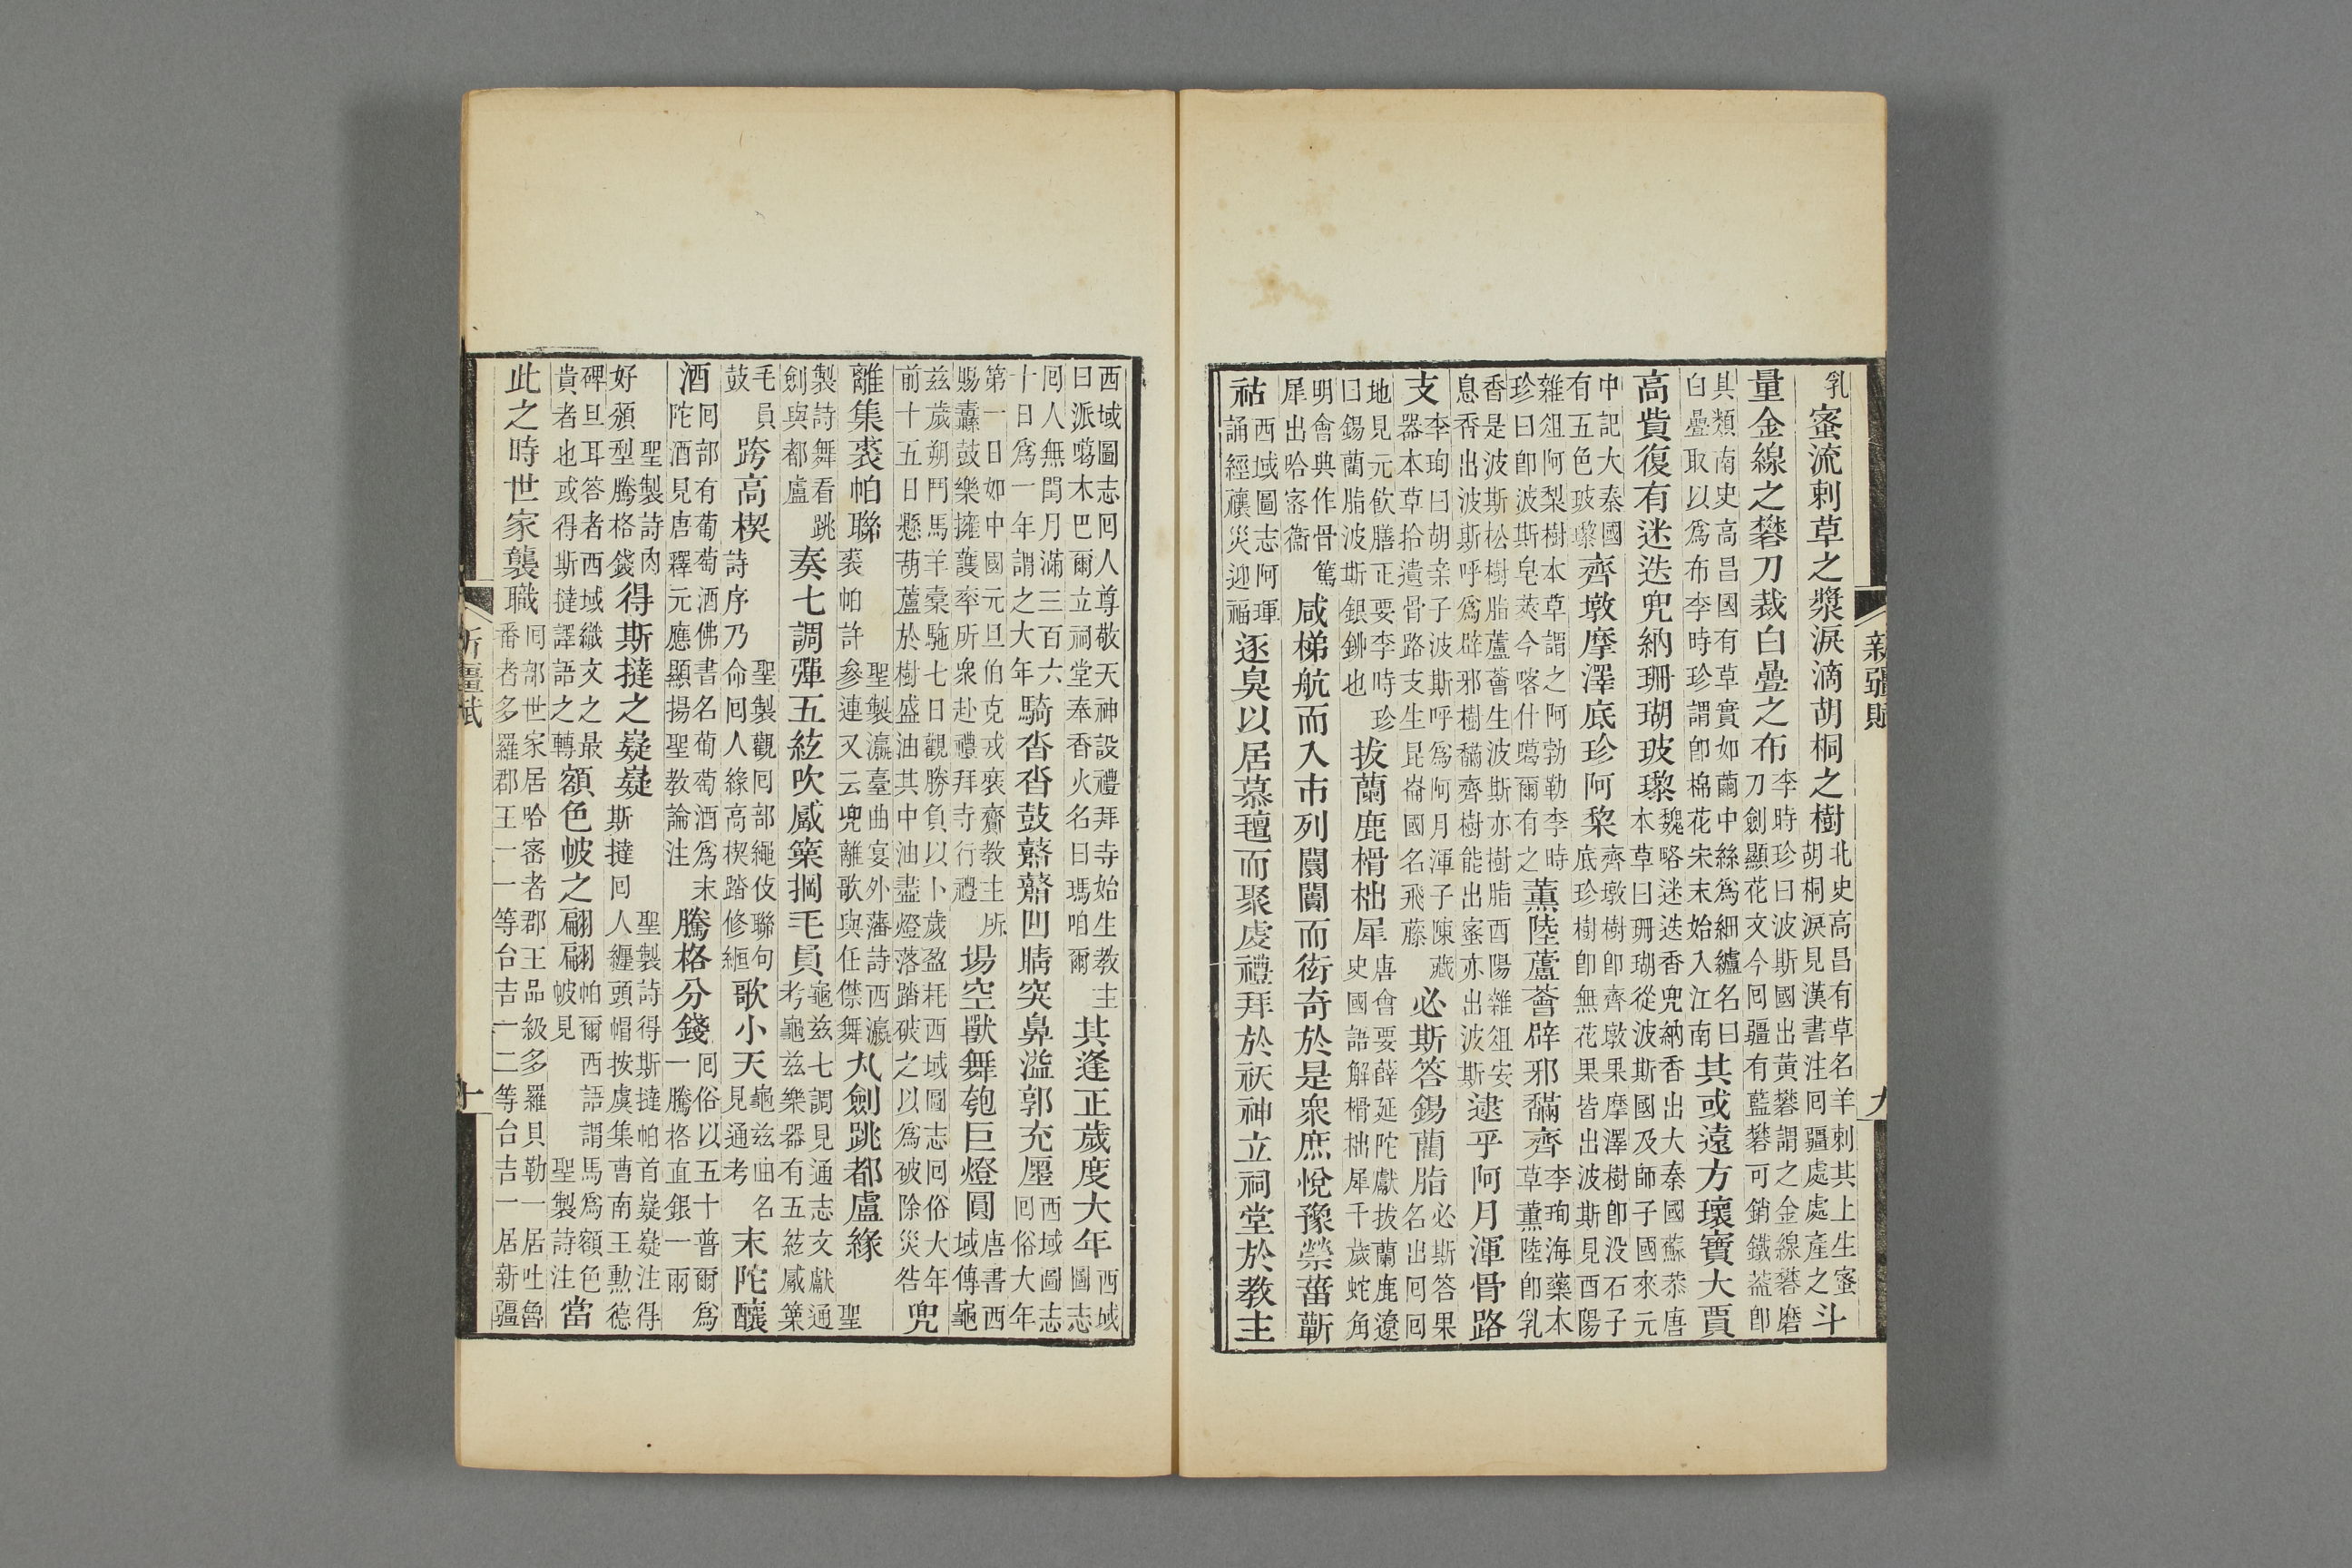 乳蜜流刺草之漿淚滴胡桐之樹北史高昌有草名羊刺其上生蜜胡桐淚見漢書注囘疆處處產之斗
量金線之礬刀裁白疊之布李時珍曰波斯國出黃礬謂之金線礬磨刀劍顯花文今囘疆有藍礬可銷鐵葢卽
其類南史高昌國有草實如繭中絲爲細纑名曰白疊取以爲布李時珍謂卽棉花宋末始入江南其或遠方瓌寶大賈
高貲復有迷迭兜納珊瑚玻瓈魏略迷迭香兜納香出大秦國蘇恭唐本草曰珊瑚從波斯國及師子國來元
中記大秦國有五色玻瓈齊墩摩澤底珍阿棃齊墩樹卽齊墩果摩澤樹卽没石子底珍樹卽無花果皆出波斯見酉陽
雜俎阿梨樹本草謂之阿勃勒李時珍曰卽波斯皂莢今喀什噶爾有之薰陸蘆薈辟邪䤍齊李珣海藥本草薰陸卽乳
香是波斯松樹脂蘆薈生波斯亦樹脂酉陽雜俎安息香出波斯呼爲辟邪樹䤍齊樹能出蜜亦出波斯逮乎阿月渾骨路
支李珣曰胡亲子波斯呼爲阿月渾子陳藏器本草拾遺骨路支生昆崙國名飛藤必斯答錫藺脂必斯答果名出囘囘
地見元飮膳正要李時珍曰錫藺脂波斯銀鉚也拔蘭鹿榾柮犀唐會要薛延陀獻拔蘭鹿遼史國語解榾柮犀千歲蛇角
明會典作骨篤犀出哈密衞咸梯航而入市列闤闠而衒奇於是衆庶悅豫縈蕃蘄
祜西域圖志阿琿誦經禳災迎福逐臭以居慕羶而聚虔禮拜於祅神立祠堂於教主
新疆賦
九
西域圖志囘人尊敬天神設禮拜寺始生教主曰派噶木巴爾立祠堂奉香火名曰瑪咱爾其逢正歲度大年西域圖志
囘人無閏月滿三百六十日爲一年謂之大年騎沓沓鼓鼛鼛凹睛突鼻溢郭充廛西域圖志囘俗大年
第一日如中國元旦伯克戎裝齎教主所賜纛鼓樂擁護率所衆赴禮拜寺行禮場空獸舞匏巨燈圓唐書西域傳龜
玆歲朔鬥馬羊橐駞七日觀勝負以卜歲盈耗西域圖志囘俗大年前十五日懸葫蘆於樹盛油其中油盡燈落踏破之以爲破除災咎兜
離集裘帕聯聖製瀛臺曲宴外藩詩西瀛裘帕許參連又云兜離歌與任㑋舞丸劍跳都盧緣聖
製詩舞看跳劍與都盧奏七調彈五絃吹觱篥掆毛員龜玆七調見通志文獻通考龜玆樂器有五絃觱篥
毛員鼓跨高楔聖製觀囘部繩伎聯句詩序乃命囘人緣高楔踏修縆歌小天龜玆曲名見通考末陀釀
酒囘部有葡萄酒佛書名葡萄酒爲末陀酒見唐釋元應顯揚聖教論注騰格分錢囘俗以五十普爾爲一騰格直銀一兩
聖製詩肉好頒型騰格錢得斯撻之嶷嶷聖製詩得斯撻帕首嶷嶷注得斯撻囘人纏頭帽按虞集曹南王勳德
碑旦耳答者西域織文之最貴者也或得斯撻譯語之轉額色帔之翩翩帕爾西語謂馬爲額色帔見聖製詩注當
此之時世家襲職囘部世家居哈密者郡王品級多羅貝勒一居吐魯番者多羅郡王一一等台吉一二等台吉一居新疆
新疆賦
十